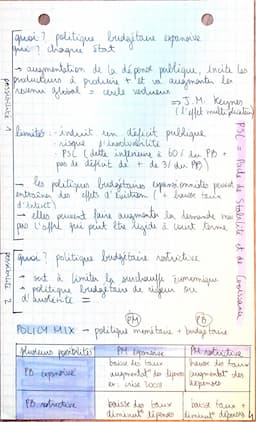 quoi? politique budgétaire expansive
qui? chaque état
possibilité 1
→ augmentation de la dépense publique, incite les
producteurs à produire + et va augmenter les
revenu global = cercle vertueux
⇒ J.M. Keynes
(l'effet multiplicateur)
limites: - induit un déficit publique
- risque d'insolvabilité
- PSC (dette inférieure à 60% du PB +
pas de déficit de + de 3% du PB)
PSC = Pacte de Stabilité et de Croissance
→ les politiques budgétaires expansionnistes peuvent
entraîner des effets d'éviction (+ hausse taux
d'intérêt)
→ elles peuvent faire augmenter la demande mais
pas l'offre qui peut être rigide à court terme
possibilité 2
quoi? politique budgétaire restrictive
→ sert à limiter la surchauffe économique
→ politique budgétaire de rigueur ou
d'austérité =
PM PB
POLICY MIX → politique monétaire + budgétaire
plusieurs possibilités PM expansive PM restrictive
PB expansive
baisse des taux
augmentat° des dépenses
ex: crise 2008
hausse des taux
augmentat° des
dépenses
PB restrictive
baisse des taux
diminut° dépenses
hausse taux +
diminut° dépenses